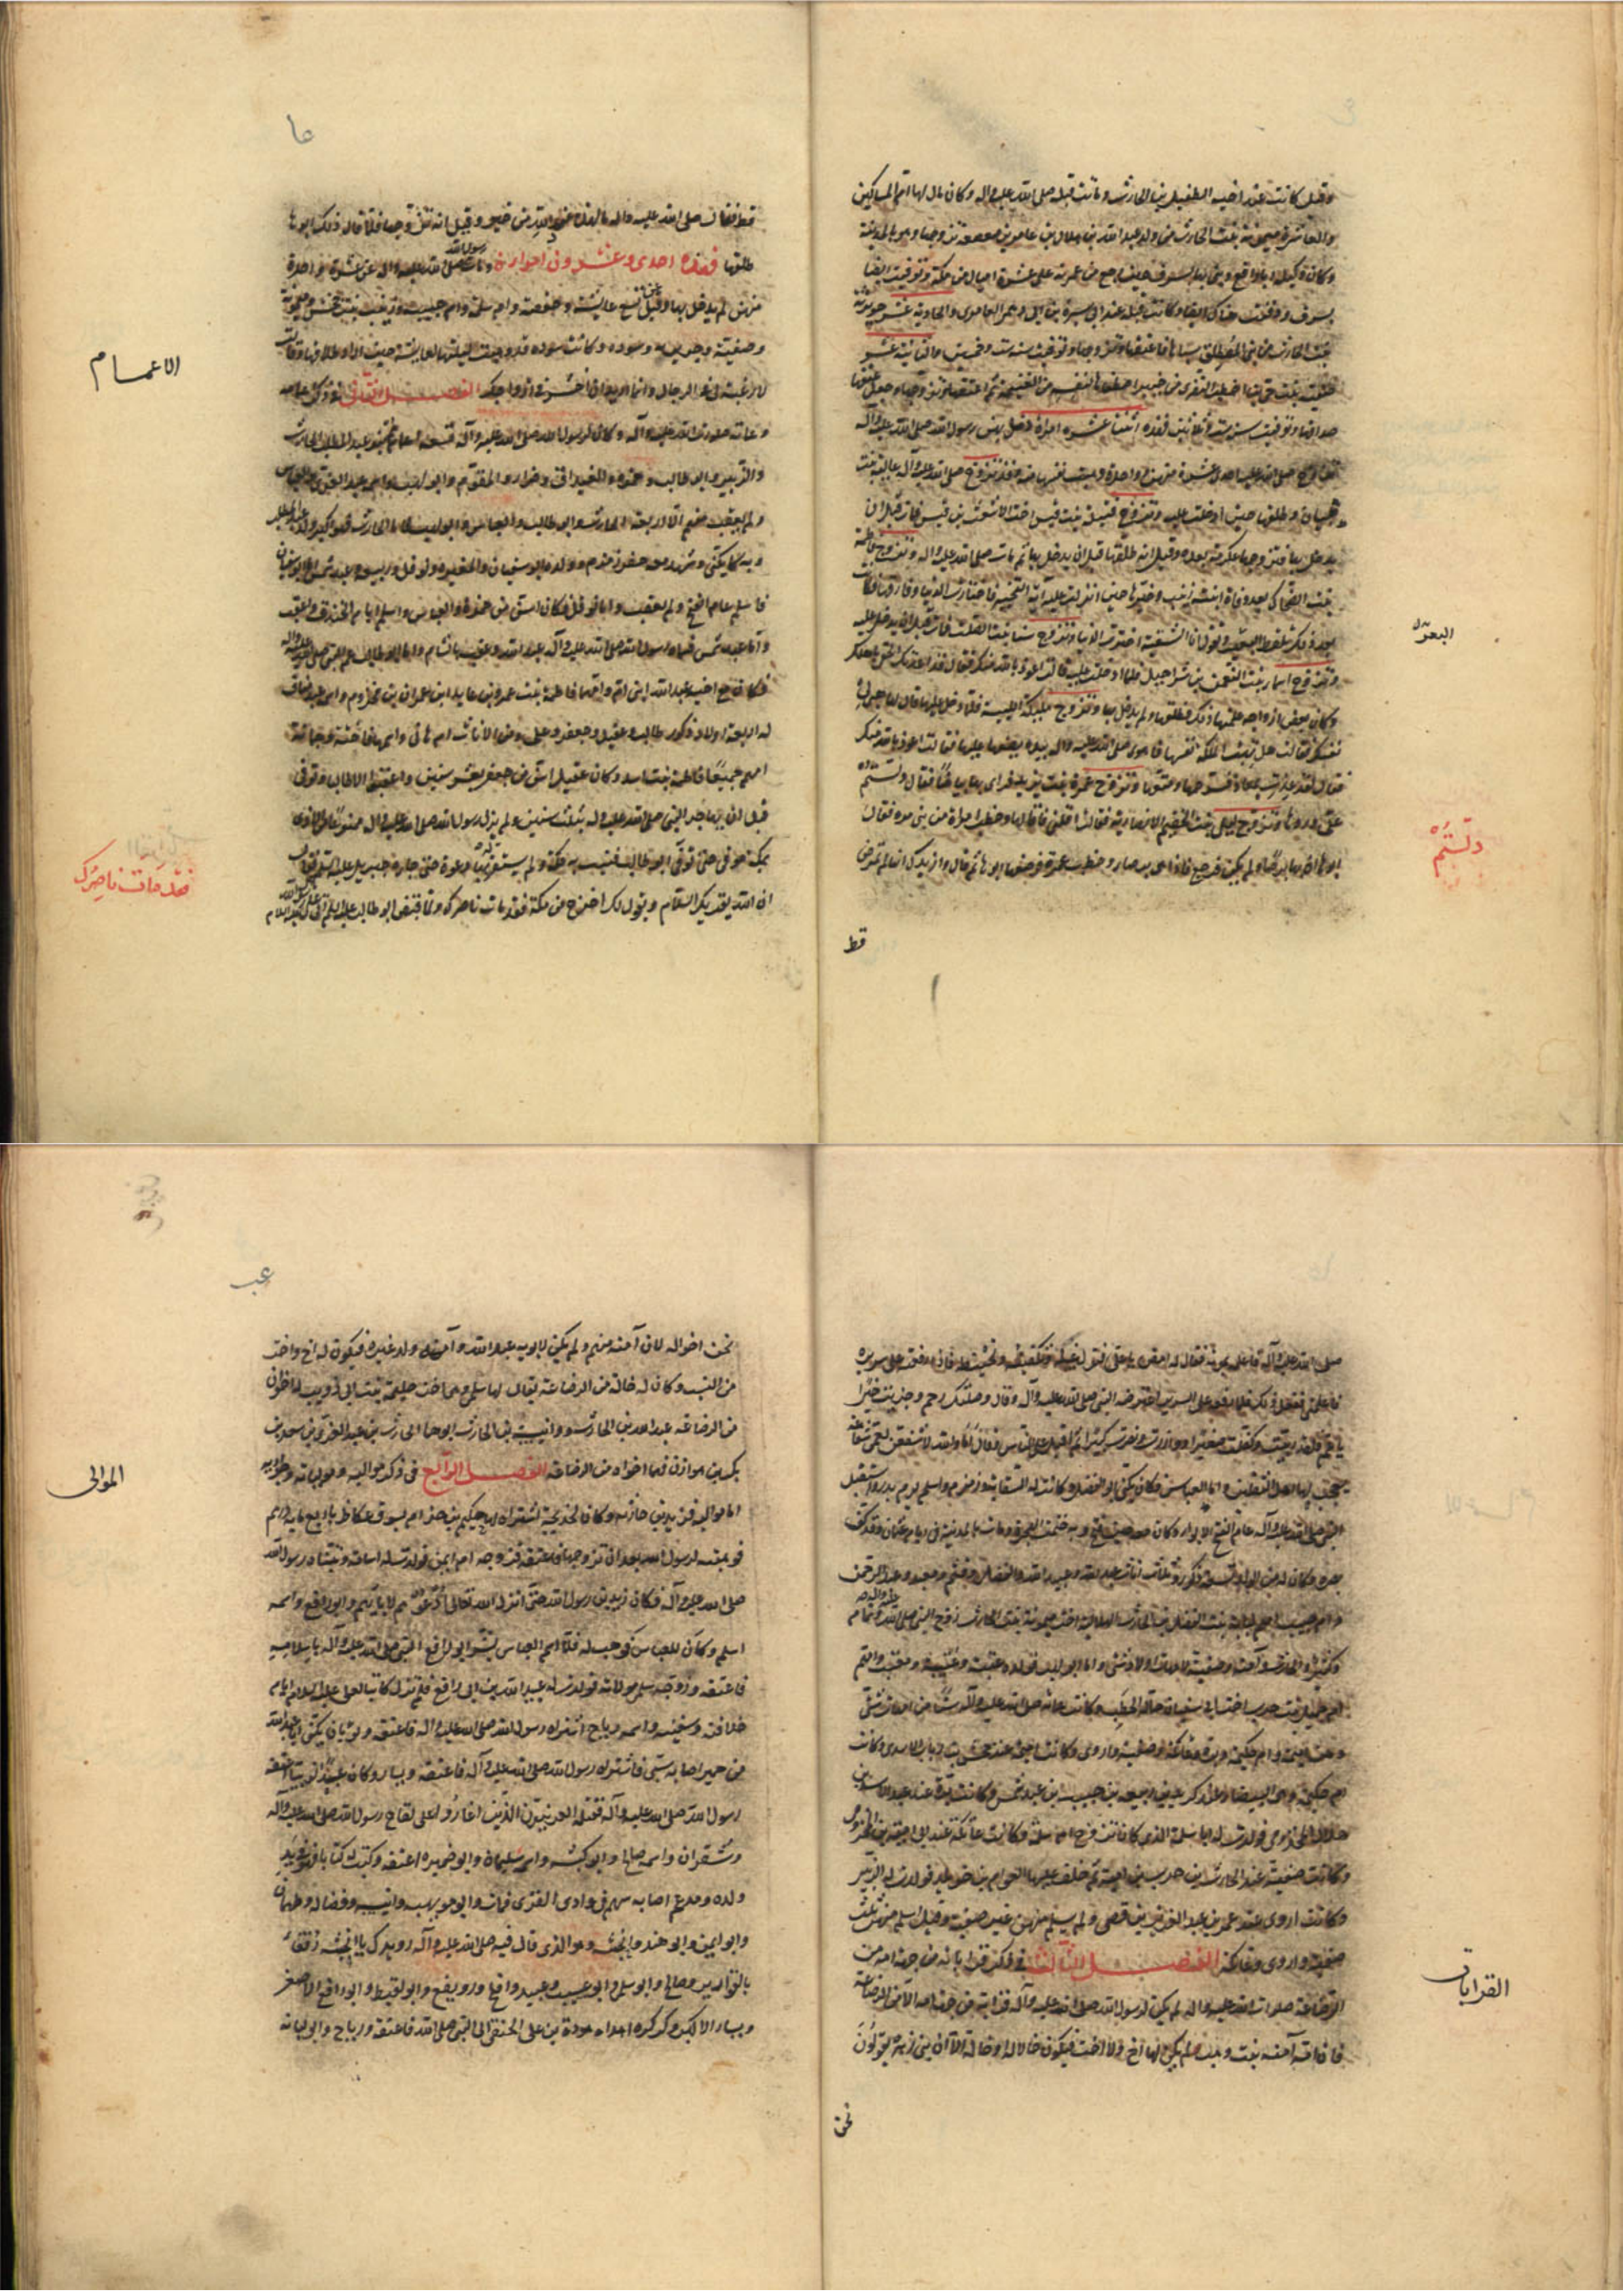 وقيل كانت عند اخيه الطفيل بن الحارث وماتت قبله صلى الله عليه واله وكان يقال لها ام المساكين
والعاشرة ميمونة بنت الحارث من ولد عبد الله بن هلال بن عامر بن صعصعة تزوجها وهو بالمدينة
وكان وكيله ابا رافع وبنى بها بسرف حين رجع من عمرته على عشرة اميال من مكة وتوفيت ايضا
بسرف ودفنت هناك ايضا وكانت قبله عند ابي سبرة بن ابي رهم العامري والحادية عشر جويرية
بنت الحارث من بني المصطلق سباها فاعتقها وتزوجها وتوفيت سنة ست وخمسين والثانية عشر
صفية بنت حيي بن اخطب النضري من خيبر اصطفاها لنفسه من الغنيمة ثم اعتقها وتزوجها وجعل عتقها
صداقها وتوفيت سنة ست وثلاثين فهذه اثنتا عشرة امراة دخل بهن رسول الله صلى الله عليه وآله
تزوج صلى الله عليه احدى عشرة منهن وواحدة وهبت نفسها منه وقد تزوج صلى الله عليه وآله عالية بنت
ظبيان وطلقها حين ادخلت عليه وتزوج قتيلة بنت قيس اخت الاشعث بن قيس فمات قبل ان
يدخل بها فتزوجها عكرمة بعده وقيل انه طلقها قبل ان يدخل بها ثم مات صلى الله عليه واله وتزوج فاطمة
بنت الضحاك بعد وفاة ابنته زينب وخيرها حين انزلت عليه آية التخيير فاختارت الدنيا وفارقها فكانت
بعد ذلك تلقط البعر وتقول انا الشقية اخترت الدنيا وتزوج سنا بنت الصلت فماتت قبل ان يدخل عليه
وتزوج اسماء بنت النعمن بن شراحيل فلما ادخلت عليه قالت اعوذ بالله منك فقال قد اعذتك الحقي باهلك
وكان بعض ازواجه علمتها ذلك فطلقها ولم يدخل بها وتزوج مليكة الليثية فلما دخل عليها قال لها هبي لي
نفسك فقالت هل تهب الملكة نفسها فاهوى صلى الله عليه واله بيده يضعها عليها فقالت اعوذ بالله منك
فقال لقد عذت بمعاذ فسرحها ومتعها وتزوج عمرة بنت يزيد فراى بها بياضا فقال دلستم
علي وردها وتزوج ليلى بنت الخطيم الانصارية فقالت اقلني فاقالها وخطب امراة من بني مرة فقال
ابوها ان بها برصا ولم يكن فرجع فاذا هي برصاء وخطب عمرة فوصفها ابوها ثم قال وازيدك انها لم تمرض
قط
البعر
دلستم
قط فقال صلى الله عليه واله ما لهذه عند الله من خير وقيل انه تزوجها فلما قال ذلك ابوها
طلقها فهذه احدى وعشرون امراة ومات رسول الله صلى الله عليه واله عن عشرة واحدة
منهن لم يدخل بها وقيل عن تسع عايشة وحفصة وام سلمة وام حبيبة وزينب بنت جحش وميمونة
وصفية وجويرية وسودة وكانت سودة قد وهبت ليلتها لعايشة حين اراد طلاقها وقالت
لا رغبة لي في الرجال وانما اريد ان احشر في ازواجك الفصل الثاني في ذكر اعمامه
وعماته صلوات الله عليه وآله وكان لرسول الله صلى الله عليه وآله تسعة اعمام هم بنو عبد المطلب الحارث
والزبير وابو طالب وحمزة والغيداق وضرار والمقوم وابو لهب واسمه عبد العزى والعباس
ولم يعقب منهم الا اربعة الحارث وابو طالب والعباس وابو لهب فاما الحارث فهو اكبر ولد عبد المطلب
وبه كان يكنى وشهد معه حفر زمزم وولده ابو سفيان والمغيرة ونوفل وربيعة وعبد شمس اما ابو سفيان
فاسلم عام الفتح ولم يعقب واما نوفل فكان اسن من حمزة والعباس واسلم ايام الخندق وله عقب
واما عبد شمس فسماه رسول الله صلى الله عليه وآله عبد الله وعقبه بالشام واما ابو طالب عم النبي صلى الله عليه واله
فكان مع اخيه عبد الله ابني ام وامهما فاطمة بنت عمرو بن عايذ بن عمران بن مخزوم واسمه عبد مناف
له اربعة اولاد ذكور طالب وعقيل وجعفر وعلي ومن الاناث ام هاني واسمها فاختة وجمانة
امهم جميعا فاطمة بنت اسد وكان عقيل اسن من جعفر بعشر سنين واعقبوا الا طالبا وتوفي
قبل ان يهاجر النبي صلى الله عليه واله بثلث سنين ولم يزل رسول الله صلى الله عليه واله ممنوعا من الاذى
بمكة موقى حتى توفي ابو طالب فنبت به مكة ولم يستقر له بها دعوة حتى جاءه جبريل عليه السلم فقال
ان الله يقريك السلام ويقول لك اخرج من مكة فقد مات ناصرك ولما قبض ابو طالب
الاعمام
فقد مات ناصرك
صلى الله عليه وآله فاعلمه بموته فقال له امض يا علي فتول غسله وتكفينه وتحنيطه فاذا رفعته على سريره
فاعلمني ففعل ذلك فلما رفعه على السرير اعترضه النبي صلى الله عليه وآله وقال وصلتك رحم وجزيت خيرا
يا عم فلقد ربيت وكفلت صغيرا ووازرت ونصرت كبيرا ثم اقبل على الناس وقال اما والله لاشفعن لعمي شفاعة
يعجب لها اهل الثقلين واما العباس فكان يكنى ابو الفضل وكانت له السقاية وزمزم واسلم يوم بدر واستقبل
النبي صلى الله عليه وآله عام الفتح بالابواء وكان معه حين فتح وبه ختمت الهجرة ومات بالمدينة في ايام عثمان وقد كف
بصره وكان له من الولد تسعة ذكور وثلث اناث عبد الله وعبيد الله والفضل وقثم ومعبد وعبد الرحمن
وام حبيب امهم لبابة بنت الفضل بنت الحارث الهلالية اخت ميمونة بنت الحارث زوج النبي صلى الله عليه واله وتمام
وكثير والحارث وآمنة وصفية لامهات اولاد شتى واما ابو لهب فولده عتبة وعتيبة ومعتب وامهم
ام جميل بنت حرب اخت ابي سفيان حمالة الحطب وكانت عماته صلى الله عليه وآله ستا من امهات شتى
وهن اميمة وام حكيمة وبرة وعاتكة وصفية واروى وكانت اميمة عند جحش بن رياب الاسدي وكانت
ام حكيمة وهي البيضاء عند كريز بن ربيعة بن حبيب بن عبد شمس وكانت برة عند عبد الاسد بن
هلال المخزومي فولدت له ابا سلمة الذي كان زوج ام سلمة وكانت عاتكة عند ابي امية بن المخزومي
وكانت صفية عند الحارث بن حرب بن امية ثم خلف عليها العوام بن خويلد فولدت له الزبير
وكانت اروى عند عمير بن عبد العزى بن قصي ولم يسلم منهن غير صفية وقيل اسلم منهن ثلث
صفية واروى وعاتكة الفصل الثالث في ذكر قراباته من جهة امه من
الرضاعة صلوات الله عليه واله لم يكن لرسول الله صلى الله عليه وآله قرابة من جهة امه الا من الرضاعة
فان امه آمنة بنت وهب لم يكن لها اخ ولا اخت فيكون خالا له او خالة الا ان بني زهرة يقولون
نحن
القرابات
نحن اخواله لان آمنة منهم ولم يكن لابويه عبد الله وآمنة ولد غيره فيكون له اخ واخت
من النسب وكان له خالة من الرضاعة يقال لها سلمى وهي اخت حليمة بنت ابي ذويب له اخوان
من الرضاعة عبد الله بن الحارث وانيسة بنت الحارث ابوهما الحارث بن عبد العزى بن سعد بن
بكر بن هوازن فهما اخواه من الرضاعة الفصل الرابع في ذكر مواليه ومولياته وجواريه
اما مواليه فزيد بن حارثة وكان لخديجة اشتراه لها حكيم بن حزام بسوق عكاظ باربع ماية درهم
فوهبته لرسول الله بعد ان تزوجها فاعتقه فزوجه ام ايمن فولدت له اسامة وتبناه رسول الله
صلى الله عليه وآله فكان زيد بن رسول الله حتى انزل الله تعالى ادعوهم لابآئهم وابو رافع واسمه
اسلم وكان للعباس فوهبه له فلما اسلم العباس بشر ابو رافع النبي صلى الله عليه وآله باسلامه
فاعتقه وزوجه سلمى مولاته فولدت له عبيد الله بن ابي رافع فلم يزل كاتبا لعلي عليه السلام ايام
خلافته وسفينة واسمه رباح اشتراه رسول الله صلى الله عليه واله فاعتقه وثوبان يكنى ابا عبد الله
من حمير اصابه سبي فاشتراه رسول الله صلى الله عليه وآله فاعتقه ويسار وكان عبدا نوبيا اعتقه
رسول الله صلى الله عليه وآله فقتله العرنيون الذين اغاروا على لقاح رسول الله صلى الله عليه وآله
وشقران واسمه صالح وابو كبشة واسمه سليمان وابو ضميرة اعتقه وكتب له كتابا فهو في يد
ولده ومدعم اصابه سهم في وادي القرى فمات وابو مويهبة وانيسة وفضالة وطهمان
وابو ايمن وابو هند وانجشة وهو الذي قال فيه صلى الله عليه وآله رويدك يا انجشة رفقا
بالقوارير وصالح وابو سلمى وابو عسيب وعبيد وافلح ورويفع وابو لقيط وابو رافع الاصغر
ويسار الاكبر وكركرة اهداه هوذة بن علي الحنفي الى النبي صلى الله فاعتقه ورباح وابو لبابة
الموالى